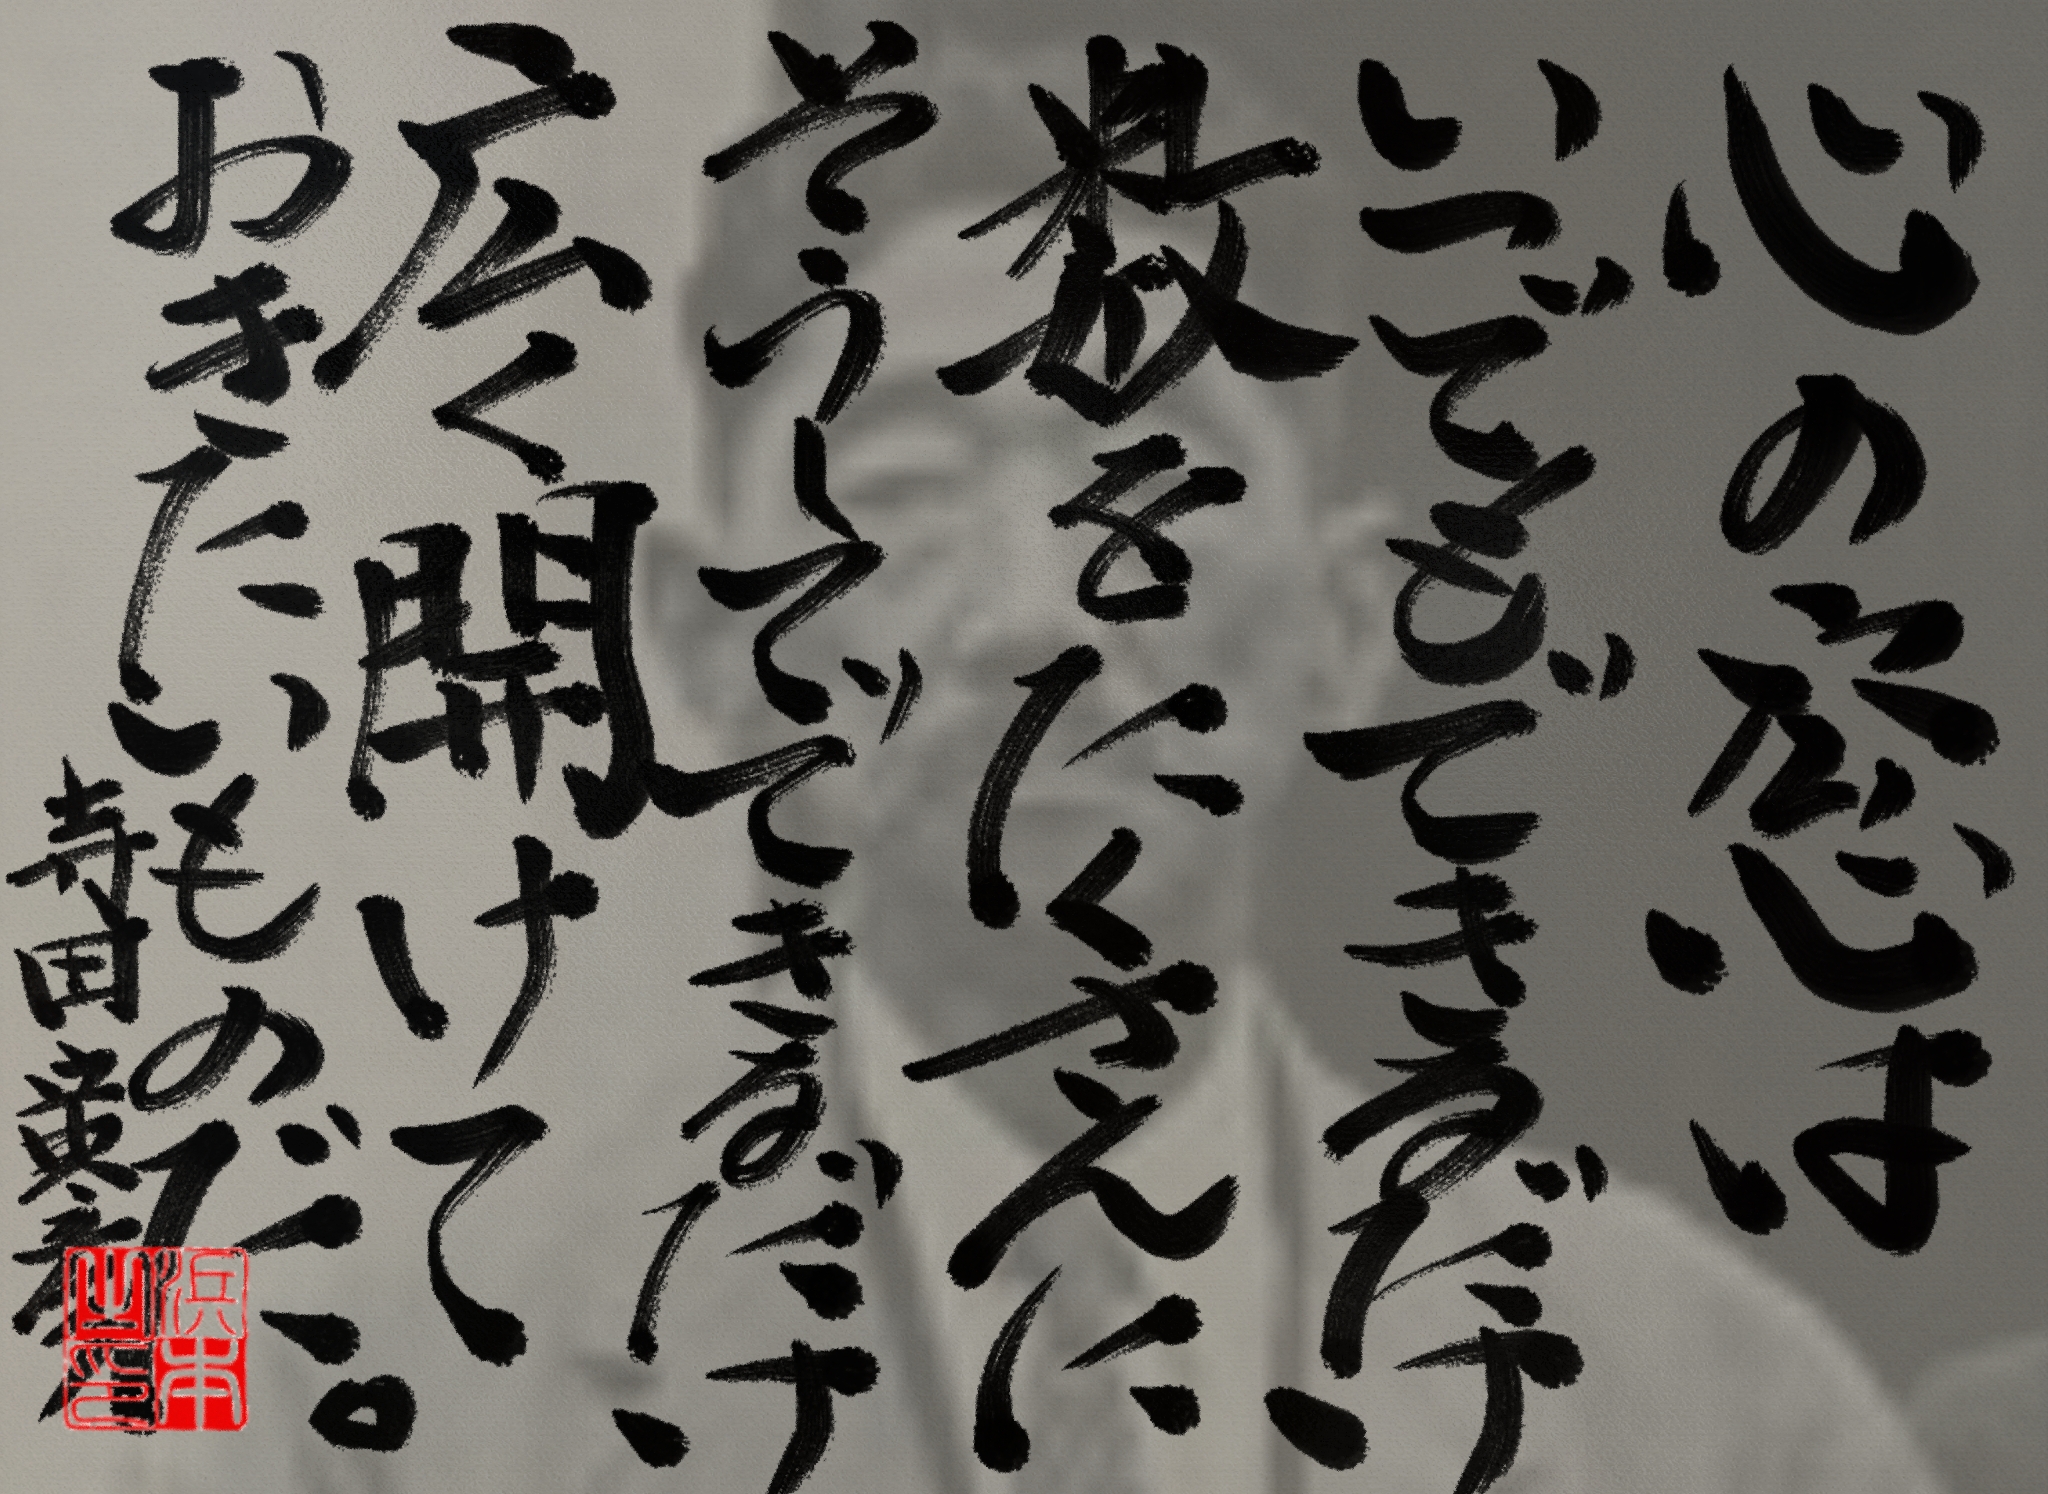 心の窓は
いつでもできるだけ
数をたくさんに
そうしてできるだけ
広く開けて
おきたいものだ。
寺田寅彦
浜本之印